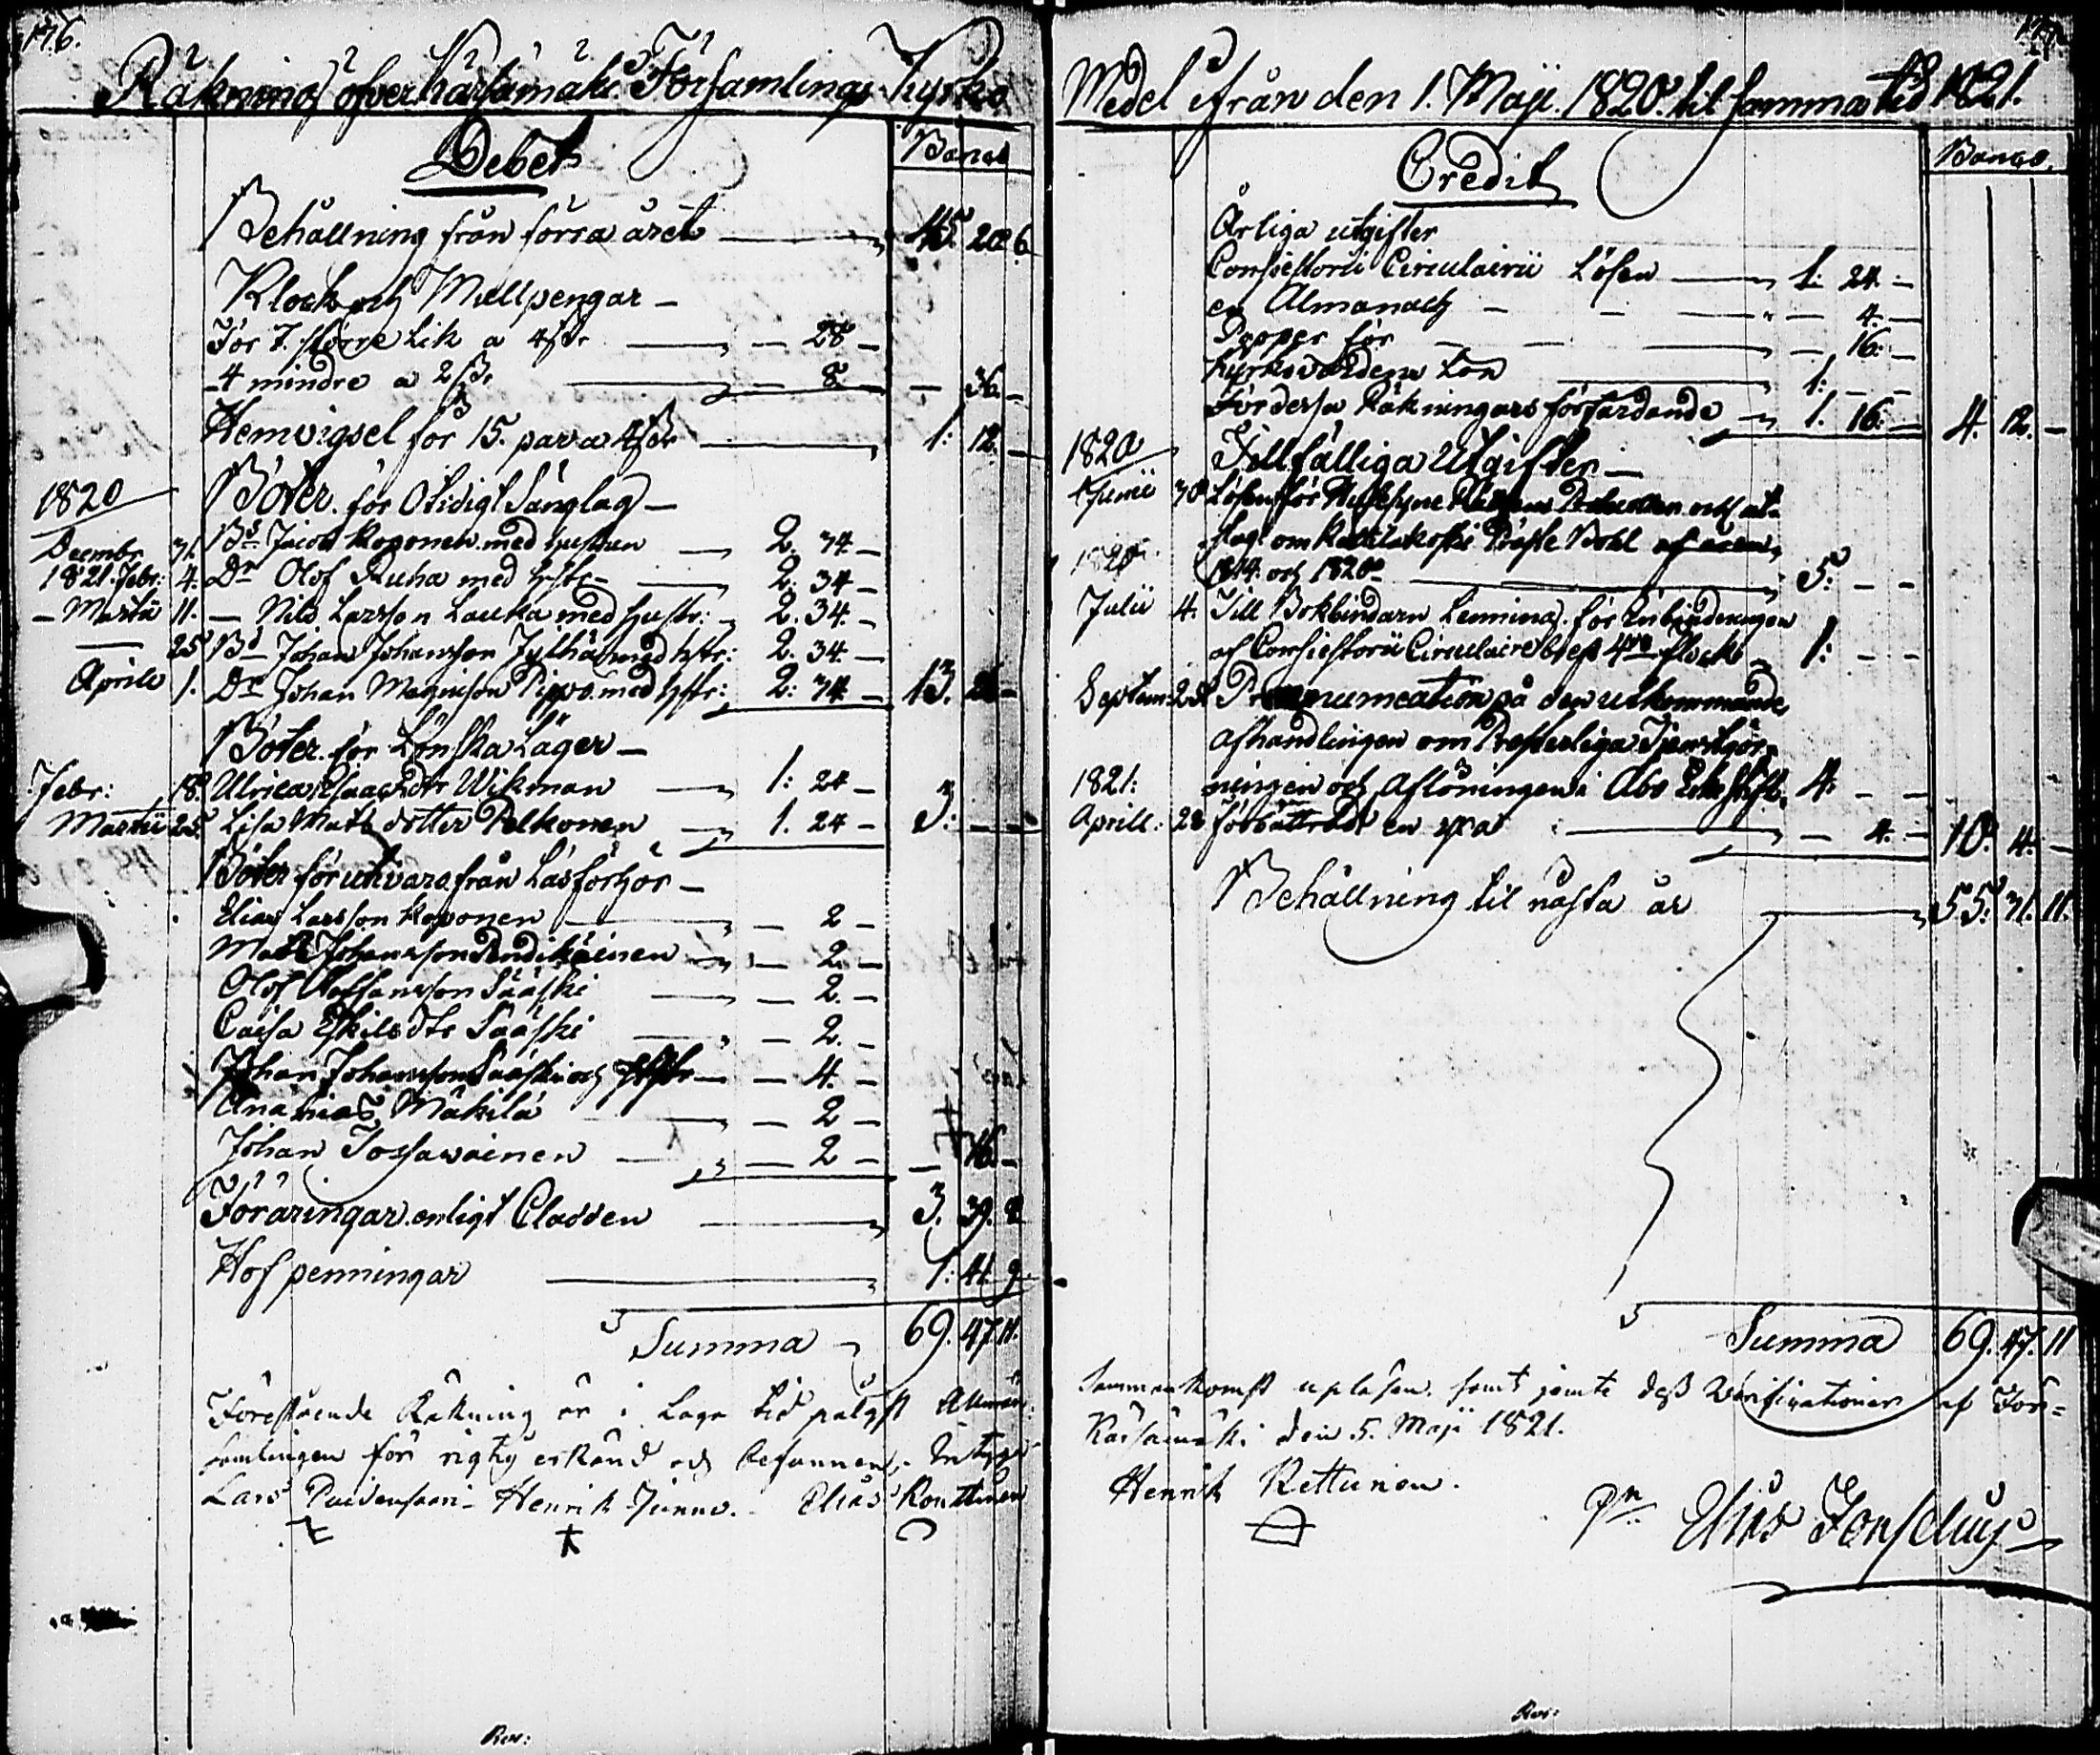 176.
Räkning öfver Kärsämäki Församlings Kyrko
Debet
Banco
Behållning från förra året 45. 20. 6.
Klock och Mullpengar —
För 7. större Lik a 4 sk. — 28 —
4 mindre a 2 sk. — 8 — — 36. —
Hemvigsel för 15. par a 4 sk 1: 12. —
1820
Böter för Otidigt Sänglag —
Decembr 31. Bd Jacob Koponen med hustrun 2. 34 —
1821. Febr: 4. Dr Olof Ruha med hstr 2: 34 —
— Martii 11. — Nils Larsson Lauka med hustr: 2. 34. —
25 Bd Johan Johansson Jylhä med hstr: 2. 34. —
Aprill 1. Dr Johan Magnisson Pippo med hstr: 2: 34 — 13. 26 —
Böter för Lönska Läger —
Febr: 18. Ulrica Isaacsdtr Wikman 1: 24 —
Martii 25. Lisa Matsdotter Pelkonen 1. 24 — 3: — —
Böter för utevaro från Läsförhör —
Elias Larsson Koponen — 2 —
Matts Johansson Pendikäinen — 2. —
Olof Olofsson Sääski — 2. —
Caisa Eskilsdtr Sääski — 2. —
Johan Johansson Sääski och hstr — 4. —
Ananias Mäkilä — 2 —
Johan Tossawainen — 2 — — 16. —
Föräringar enligt Cladden 3. 39. 8
Hofpenningar 1: 41. 9
Summa 69. 47. 11.
Förestående Räkning är i Laga tid pålyst Allmän
samlingen för rigtig erkänd och befunnen, Intyga
Lars Paidensaari Henrik Junno. Elias Konttinen
Rev:
Medel ifrån den 1. Maji 1820. til samma tid 1821.
Credit
Banco.
Årliga utgifter
Consistorii Circulairii Lösen 1: 24. —
en Almanach — 4. —
Papper för — 16: —
Kyrkovärdens Lön 1: — —
För dessa Räkningars författande 1. 16. — 4. 12. —
1820
Tillfälliga Utgifter —
Junii 30 Lösen för
slag om Präste Bohl af åren
1814. och 1820 5: — —
Julii 4. Till Bokbindarn Leming för Inbindningen
af Consistorii Circulaire bref 4ra flock 1: — —
Septem: 28 Prenumeration på den utkommande
afhandlingen om Presterliga Tjenstgör-
1821: ningen och Aflöningen i Åbo Erke Stift 4: — —
Aprill: 28 förbättrade en — 4. — 10. 4. —
Behållning til nästa år 55: 31. 11.
Summa 69. 47. 11
Sammankomst upläsen samt jämte dess Verificationer af För=
Kärsämäki den 5. Maji 1821.
Henrik Kettunen.
Elias
Rev: